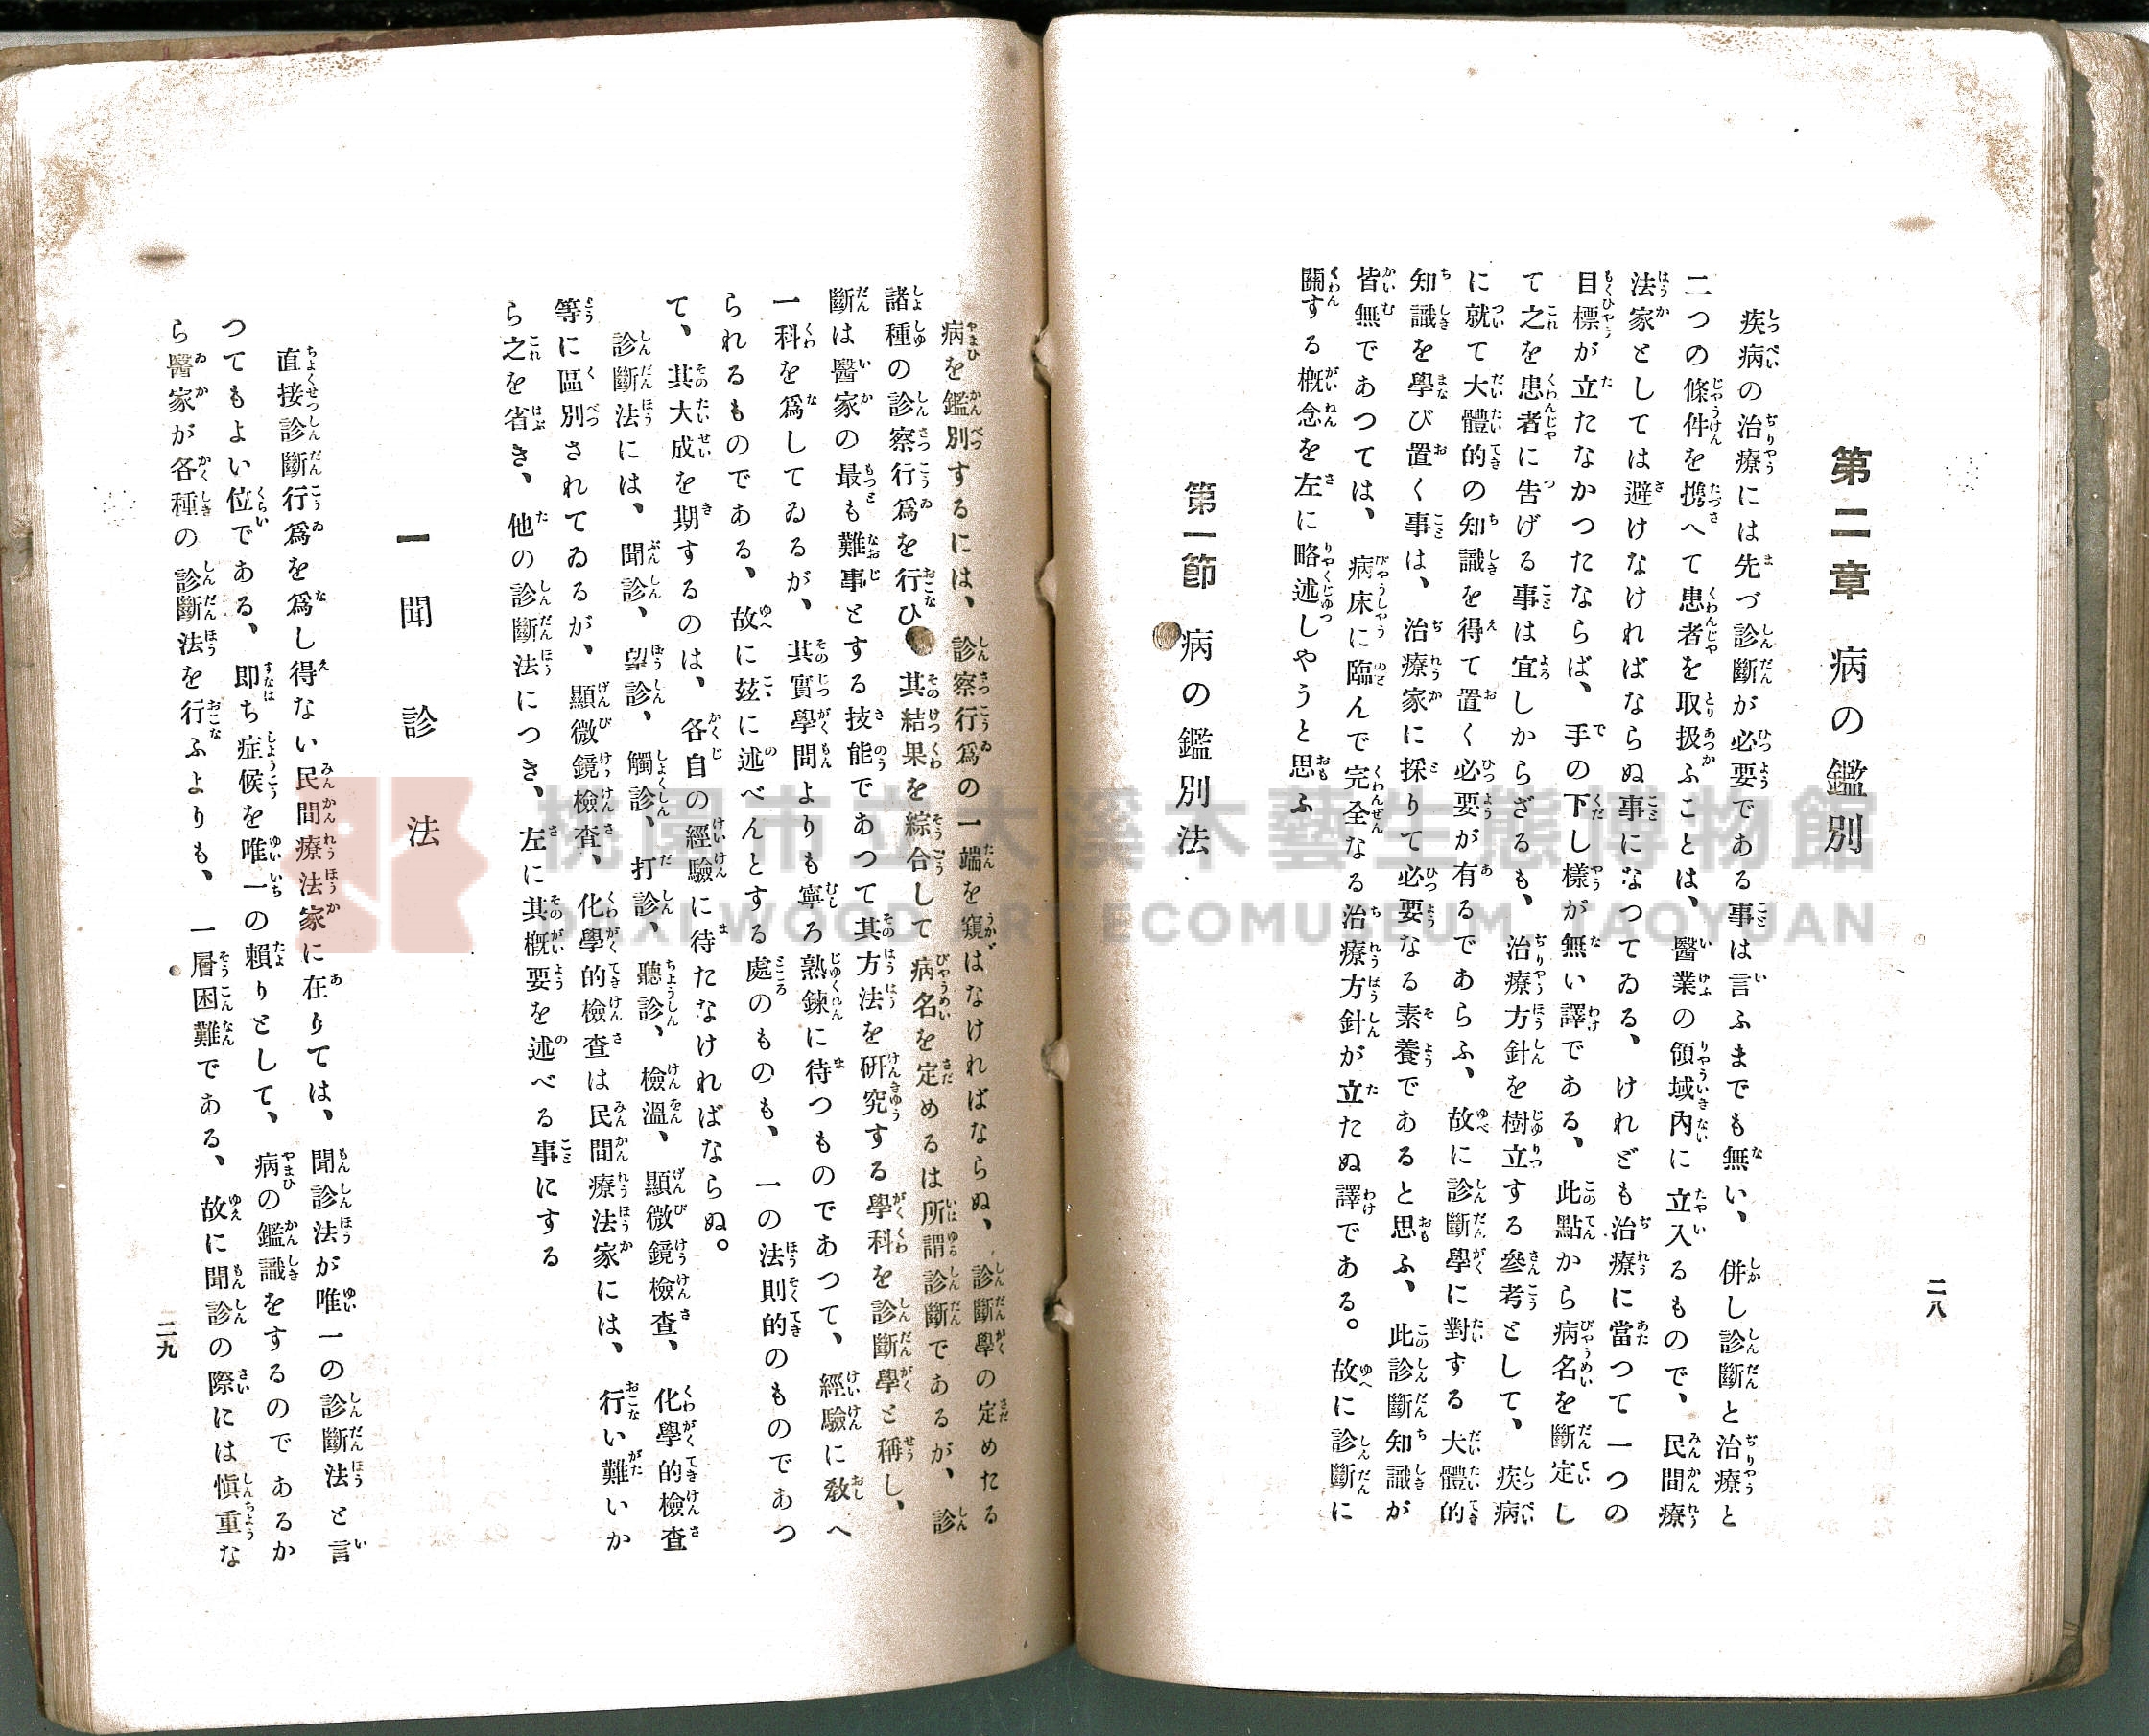 二八
第二章　病の鑑別
疾病の治療には先づ診斷が必要である事は言ふまでも無い、併し診斷と治療と
二つの條件を携へて患者を取扱ふことは、醫業の領域內に立入るもので、民間療
法家としては避けなければならぬ事になつてゐる、けれども治療に當つて一つの
目標が立たなかつたならば、手の下し樣が無い譯である、此點から病名を斷定し
て之を患者に告げる事は宜しからざるも、治療方針を樹立する參考として、疾病
に就て大體的の知識を得て置く必要が有るであらふ、故に診斷學に對する大體的
知識を學び置く事は、治療家に採りて必要なる素養であると思ふ、此診斷知識が
皆無であつては、病床に臨んで完全なる治療方針が立たぬ譯である。故に診斷に
關する槪念を左に略述しやうと思ふ
第一節　病の鑑別法
病を鑑別するには、診察行爲の一端を窺はなければならぬ、診斷學の定めたる
諸種の診察行爲を行ひ、其結果を綜合して病名を定めるは所謂診斷であるが、診
斷は醫家の最も難事とする技能であつて其方法を硏究する學科を診斷學と稱し、
一科を爲してゐるが、其實學問よりも寧ろ熟鍊に待つものであつて、經驗に敎へ
られるものである、故に玆に述べんとする處のものも、一の法則的のものであつ
て、其大成を期するのは、各自の經驗に待たなければならぬ。
診斷法には、聞診、望診、觸診、打診、聽診、檢溫、顯微鏡檢查、化學的檢查
等に區別されてゐるが、顯微鏡檢查、化學的檢查は民間療法家には、行い難いか
ら之を省き、他の診斷法につき、左に其槪要を述べる事にする
一　聞診法
直接診斷行爲を爲し得ない民間療法家に在りては、聞診法が唯一の診斷法と言
つてもよい位である、卽ち症候を唯一の賴りとして、病の鑑識をするのであるか
ら醫家が各種の診斷法を行ふよりも、一層困難である、故に聞診の際には愼重な
二九
桃園市立大溪木藝生態博物館
DAXI WOOD ART ECOMUSEUM, TAOYUAN